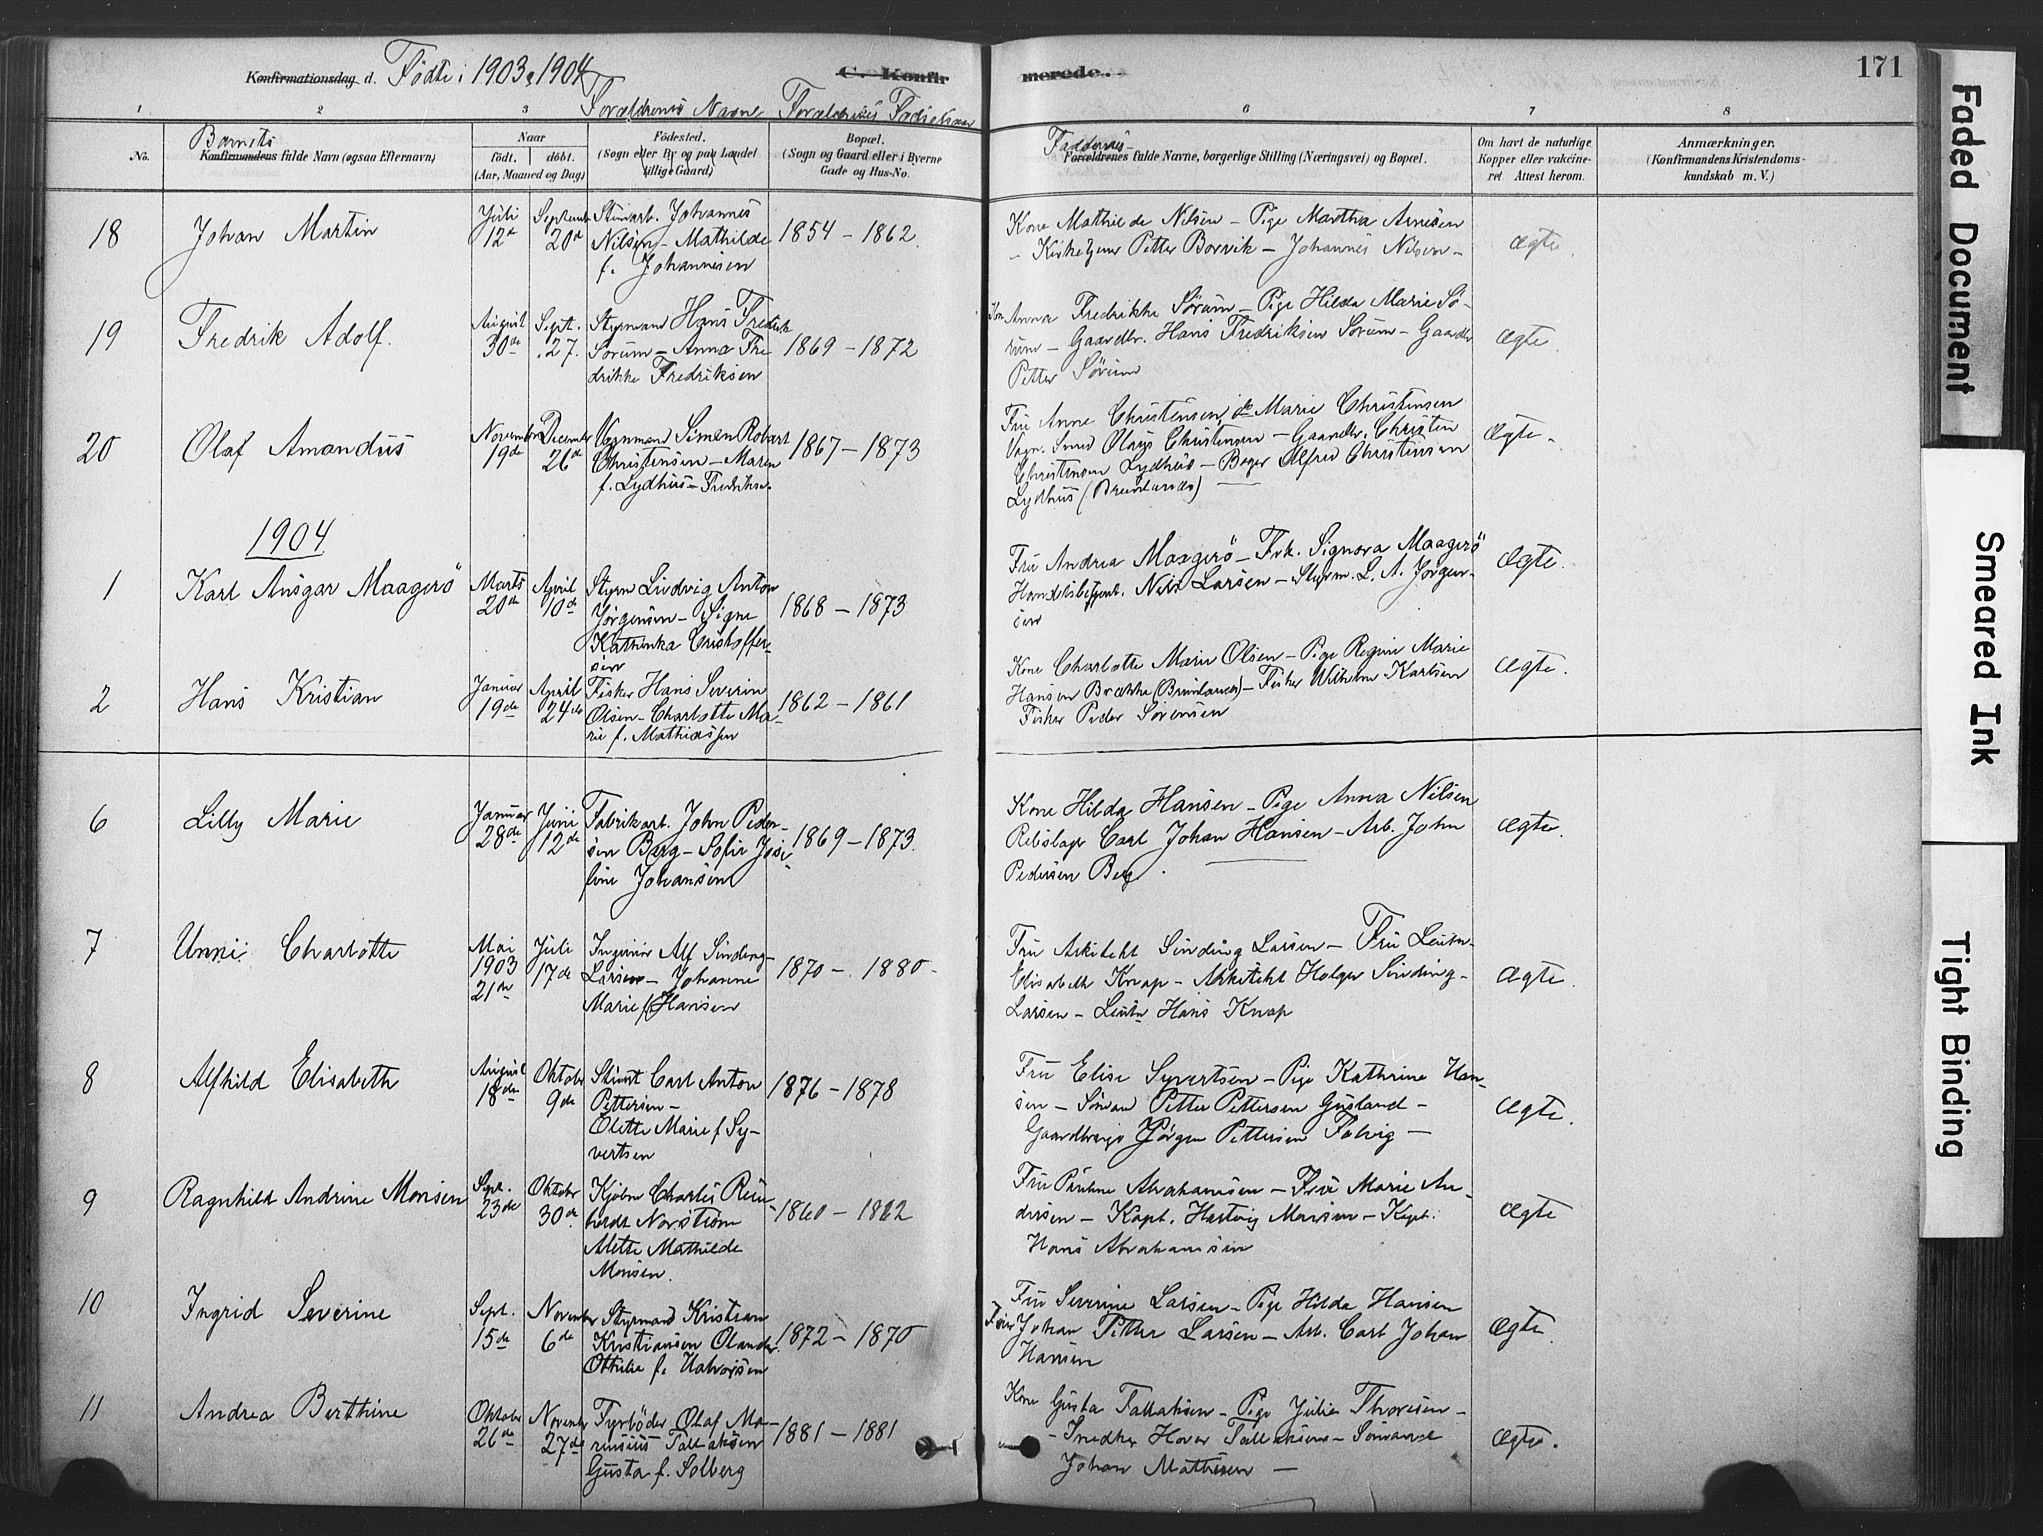 Konfirmationsdag d. Fødte i 1903, 1904
C. Konfirmerede.
171
Forældrenes Navne Forældrenes Fødselsaar
1 2 3 6 7 8
No.
Barnets
Konfirmandens fulde Navn (ogsaa Efternavn)
Naar
født. døbt.
(Aar, Maaned og Dag)
Fødested.
(Sogn eller By og paa Landet
tillige Gaard)
Bopæl.
(Sogn og Gaard eller i Byerne
Gade og Hus-No.
Faddernes
Forældrenes fulde Navne, borgerlige Stilling (Næringsvei) og Bopæl.
Om havt de naturlige
Kopper eller vakcine-
ret Attest herom.
Anmærkninger.
(Konfirmandens Kristendoms-
kundskab m. V.)
18
Johan Martin
Juli
12te
Septemb
20de
Stenarb. Johannes
Nilsen - Mathilde
f. Johannesen
1854 - 1862.
Kone Mathilde Nilsen - Pige Martha Arnesen
- Kirketjener Petter Borvik - Johannes Nilsen -
ægte.
19
Fredrik Adolf.
August
30de
Sept.
27.
Styrmand Hans Fredrik
Sørum - Anna Fre
drikke Fredriksen
1869 - 1872
Kone Anna Fredrikke Sørum - Pige Hilda Marie Sø-
rum - Gaardbr. Hans Fredriksen Sørum - Gaardbr
Petter Sørum
ægte.
20
Olaf Amandus
November
19de
December
26de
Vognmand Simen Robert
Christensen - Maren
f. Lydhus - Fredriksen.
1867 - 1873
Fru Anne Christensen, do Marie Christensen
Vogn. Smed Olaus Christensen - Gaardbr. Christen
Christensen Lydhus - Bager Alfred Christensen
Lydhus (Brunlanæs)
ægte -
1904
1
Karl Ansgar Maagerö
Marts
20de
April
10de
Styrm Ludvig Anton
Jørgensen - Signe
Kathinka Cristoffer-
sen
1868 - 1873
Fru Andrea Maagerö - Frk. Signora Maagerö
Handelsbetjent. Nils Larsen - Styrm. L. A. Jørgen-
sen
Ægte.
2
Hans Kristian
Januar
19de
April
24de
Fisker Hans Severin
Olsen - Charlotte Ma-
rie f. Mathiassen
1862 - 1861
Kone Charlotte Marie Olsen - Pige Regine Marie
Hansen Brække (Brunlanæs) - Fisker Wilhelm Karlsen
Fisker Peder Sørensen
Ægte.
6
Lilly Marie
Januar
28de
Juni
12de
Fabrikarb. John Peder-
sen Berg - Sofie Jose-
fine Johansen
1869 - 1873.
Kone Hilda Hansen - Pige Anna Nilsen
Rebslager Carl Johan Hansen - Arb. John
Pedersen Berg.
Ægte.
7
Unni Charlotte
Mai
1903
21de
Juli
17de
Ingeniør Alf Sinding-
Larsen - Johanne
Marie f. Hansen
1870 - 1880 -
Fru Arkitekt Sinding Larsen - Fru Leutn-
Elisabeth Knap - Arkitekt Holger Sinding-
Larsen - Leutn Hans Knap
Ægte.
8
Alfhild Elisabeth
August
18de
Oktober
9de
Stuert Carl Anton
Pettersen -
Olette Marie f Sy-
vertsen
1876 - 1878
Fru Elise Syvertsen - Pige Kathrine Han-
sen - Sömand Petter Pettersen Gusland -
Gaardbruger Jørgen Pettersen Tolvig -
Ægte.
9
Ragnhild Andrine Monsen
Sept.
23de
Oktober
30de
Kjøbm Charles Rein-
hardt Norstrøm
Alette Mathilde
Monsen.
1860 - 1862
Fru Pauline Abrahamsen - Fru Marie An-
dersen - Kapt. Hartvig Monsen - Kapt.
Hans Abrahamsen
Ægte
10
Ingrid Severine
Sept.
15de
November
6de
Styrmand Kristian
Kristiansen Olander
Othilie f. Halvorsen
1872 - 1870
Fru Severine Larsen - Pige Hilda Hansen
Johan Petter Larsen - Arb. Carl Johan
Hansen
Ægte.
11
Andrea Berthine
Oktober
26de
November
27de
Fyrbøder Olaf Ma-
rinius Tallaksen
Gusta f. Solberg
1881 - 1881
Kone Gusta Tallaksen - Pige Julie Thoresen -
- Snedker Hover Tallaksen - Sømand
Johan Mathisen -
Ægte.
Faded Document
Smeared Ink
Tight Binding